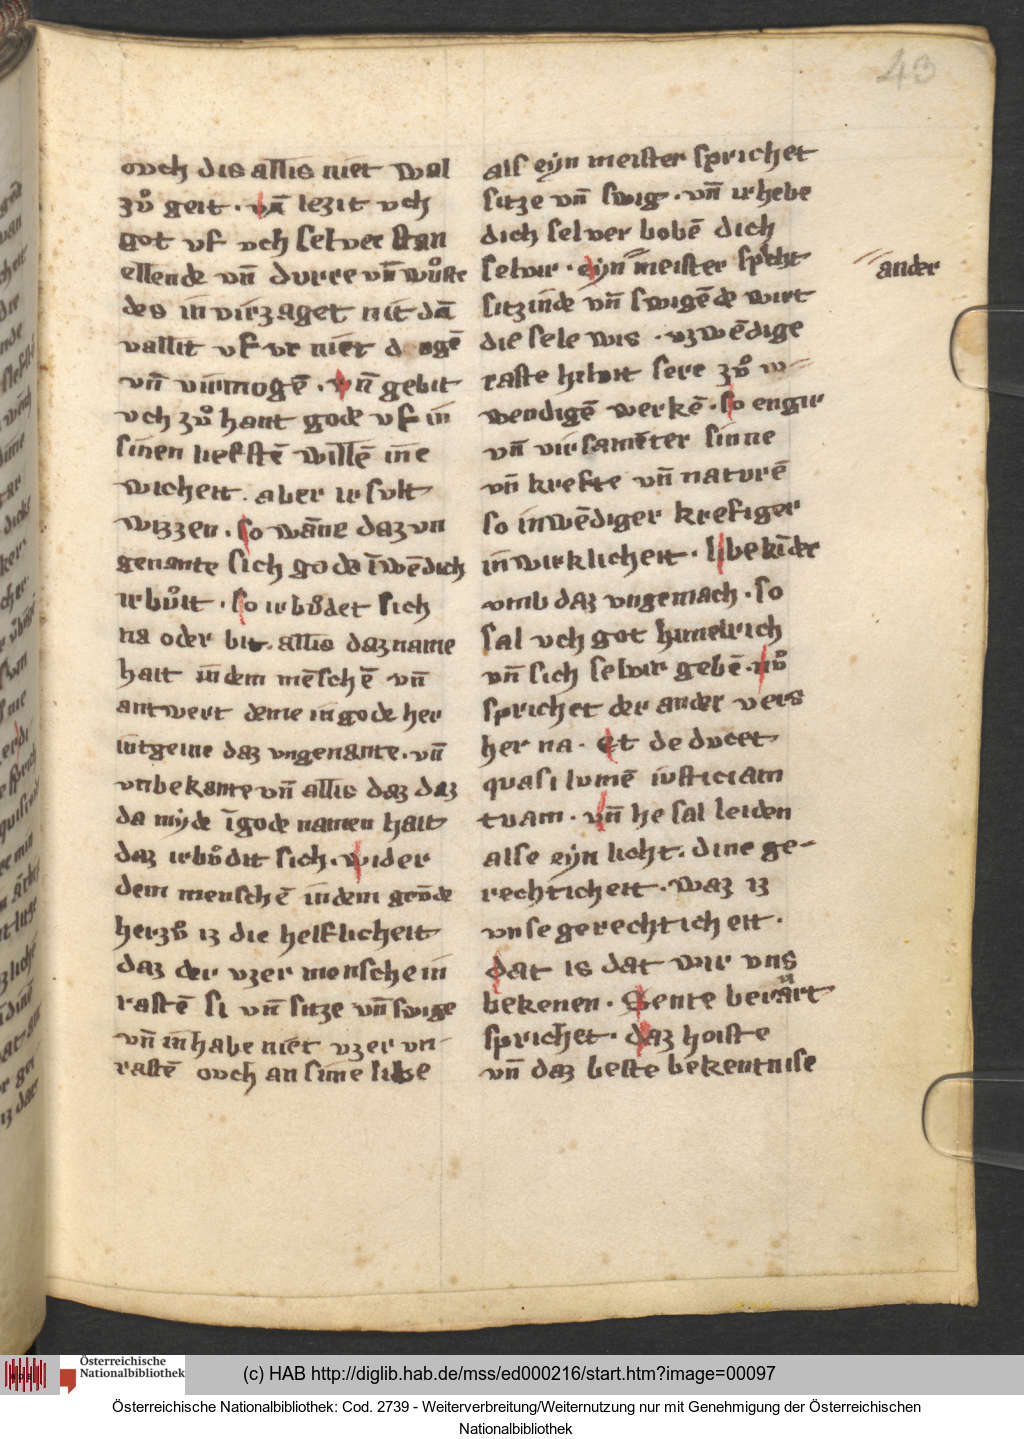 43
ouch dis allis niet wal
zuͦ geit · vn̄ lezit vch
got vf vch selver stan
ellende vn̄ durre vn̄ wuͦste
des in virzaget nit dā
vallit vf vr niet d ogē
vn̄ virmogē · vn̄ gebit
vch zuͦ hant gode vf in
sinen liefstē willē in e
wicheit . aber ir sult
wizzen · so wāne daz vn
genante sich gode īwēdich
irbuͦit · so irbuͦdet sich
na oder bit . allis daz name
hait in dem mēschē vn̄
antwert deme in gode her
intgeine daz vngenante · vn̄
vnbekante vn̄ allis daz daz
da myde ī gode namen hait
daz irbuͦdit sich · wider
dem menschē in dem grūde
herzuͦ iz die helflicheit
daz der vzer mensche in
rastē si vn̄ sitze vn̄ swige
vn̄ in habe niet vzer vn-
rastē ouch an sime libe
als eyn meister sprichet
sitze vn̄ swig · vn̄ irhebe
dich selver bobē dich
selvir · eyn meister spͥcht
ander
sitzinde vn̄ swigēde wirt
die sele wis · vzwēdige
raste hilpit sere zuͦ in-
wendigē werkē · so engir
vn̄ virsamēter sinne
vn̄ krefte vn̄ naturē
so inwēdiger krefiger
in wirklicheit · libe kīder
vmb daz vngemach · so
sal vch got himelrich
vn̄ sich selvir gebē · nuͦ
sprichet der ander vers
her na · et deducet
quasi lumē iusticiam
tuam · vn̄ he sal leiden
alse eyn licht . dine ge-
rechticheit · waz iz
vnse gerechticheit ·
dat is dat wir vns
bekenen · Sente bernart
sprichet · daz hoiste
vn̄ daz beste bekentnise
Österreichische
Nationalbibliothek
(c) HAB http://diglib.hab.de/mss/ed000216/start.htm?image=00097
Österreichische Nationalbibliothek: Cod. 2739 - Weiterverbreitung/Weiternutzung nur mit Genehmigung der Österreichischen
Nationalbibliothek